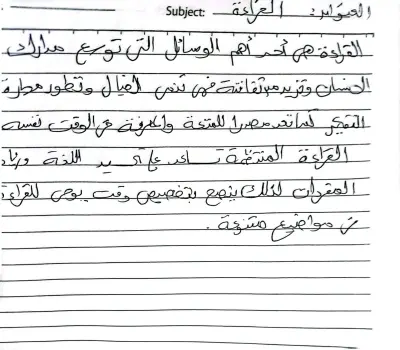 العنوان: القراءة Subject:
القراءة هي أحد أهم الوسائل التي توسع مدارك
الانسان وتزيد من ثقافته فهي تنمي الخيال وتطور مهارة
التفكير كما تعد مصدرا للمتعة والمعرفة في الوقت نفسه
القراءة المنتظمة تساعد على تحسين اللغة وزياد
المفردات لذلك ينصح بتخصيص وقت يومي للقراءة
في مواضيع متنوعة.